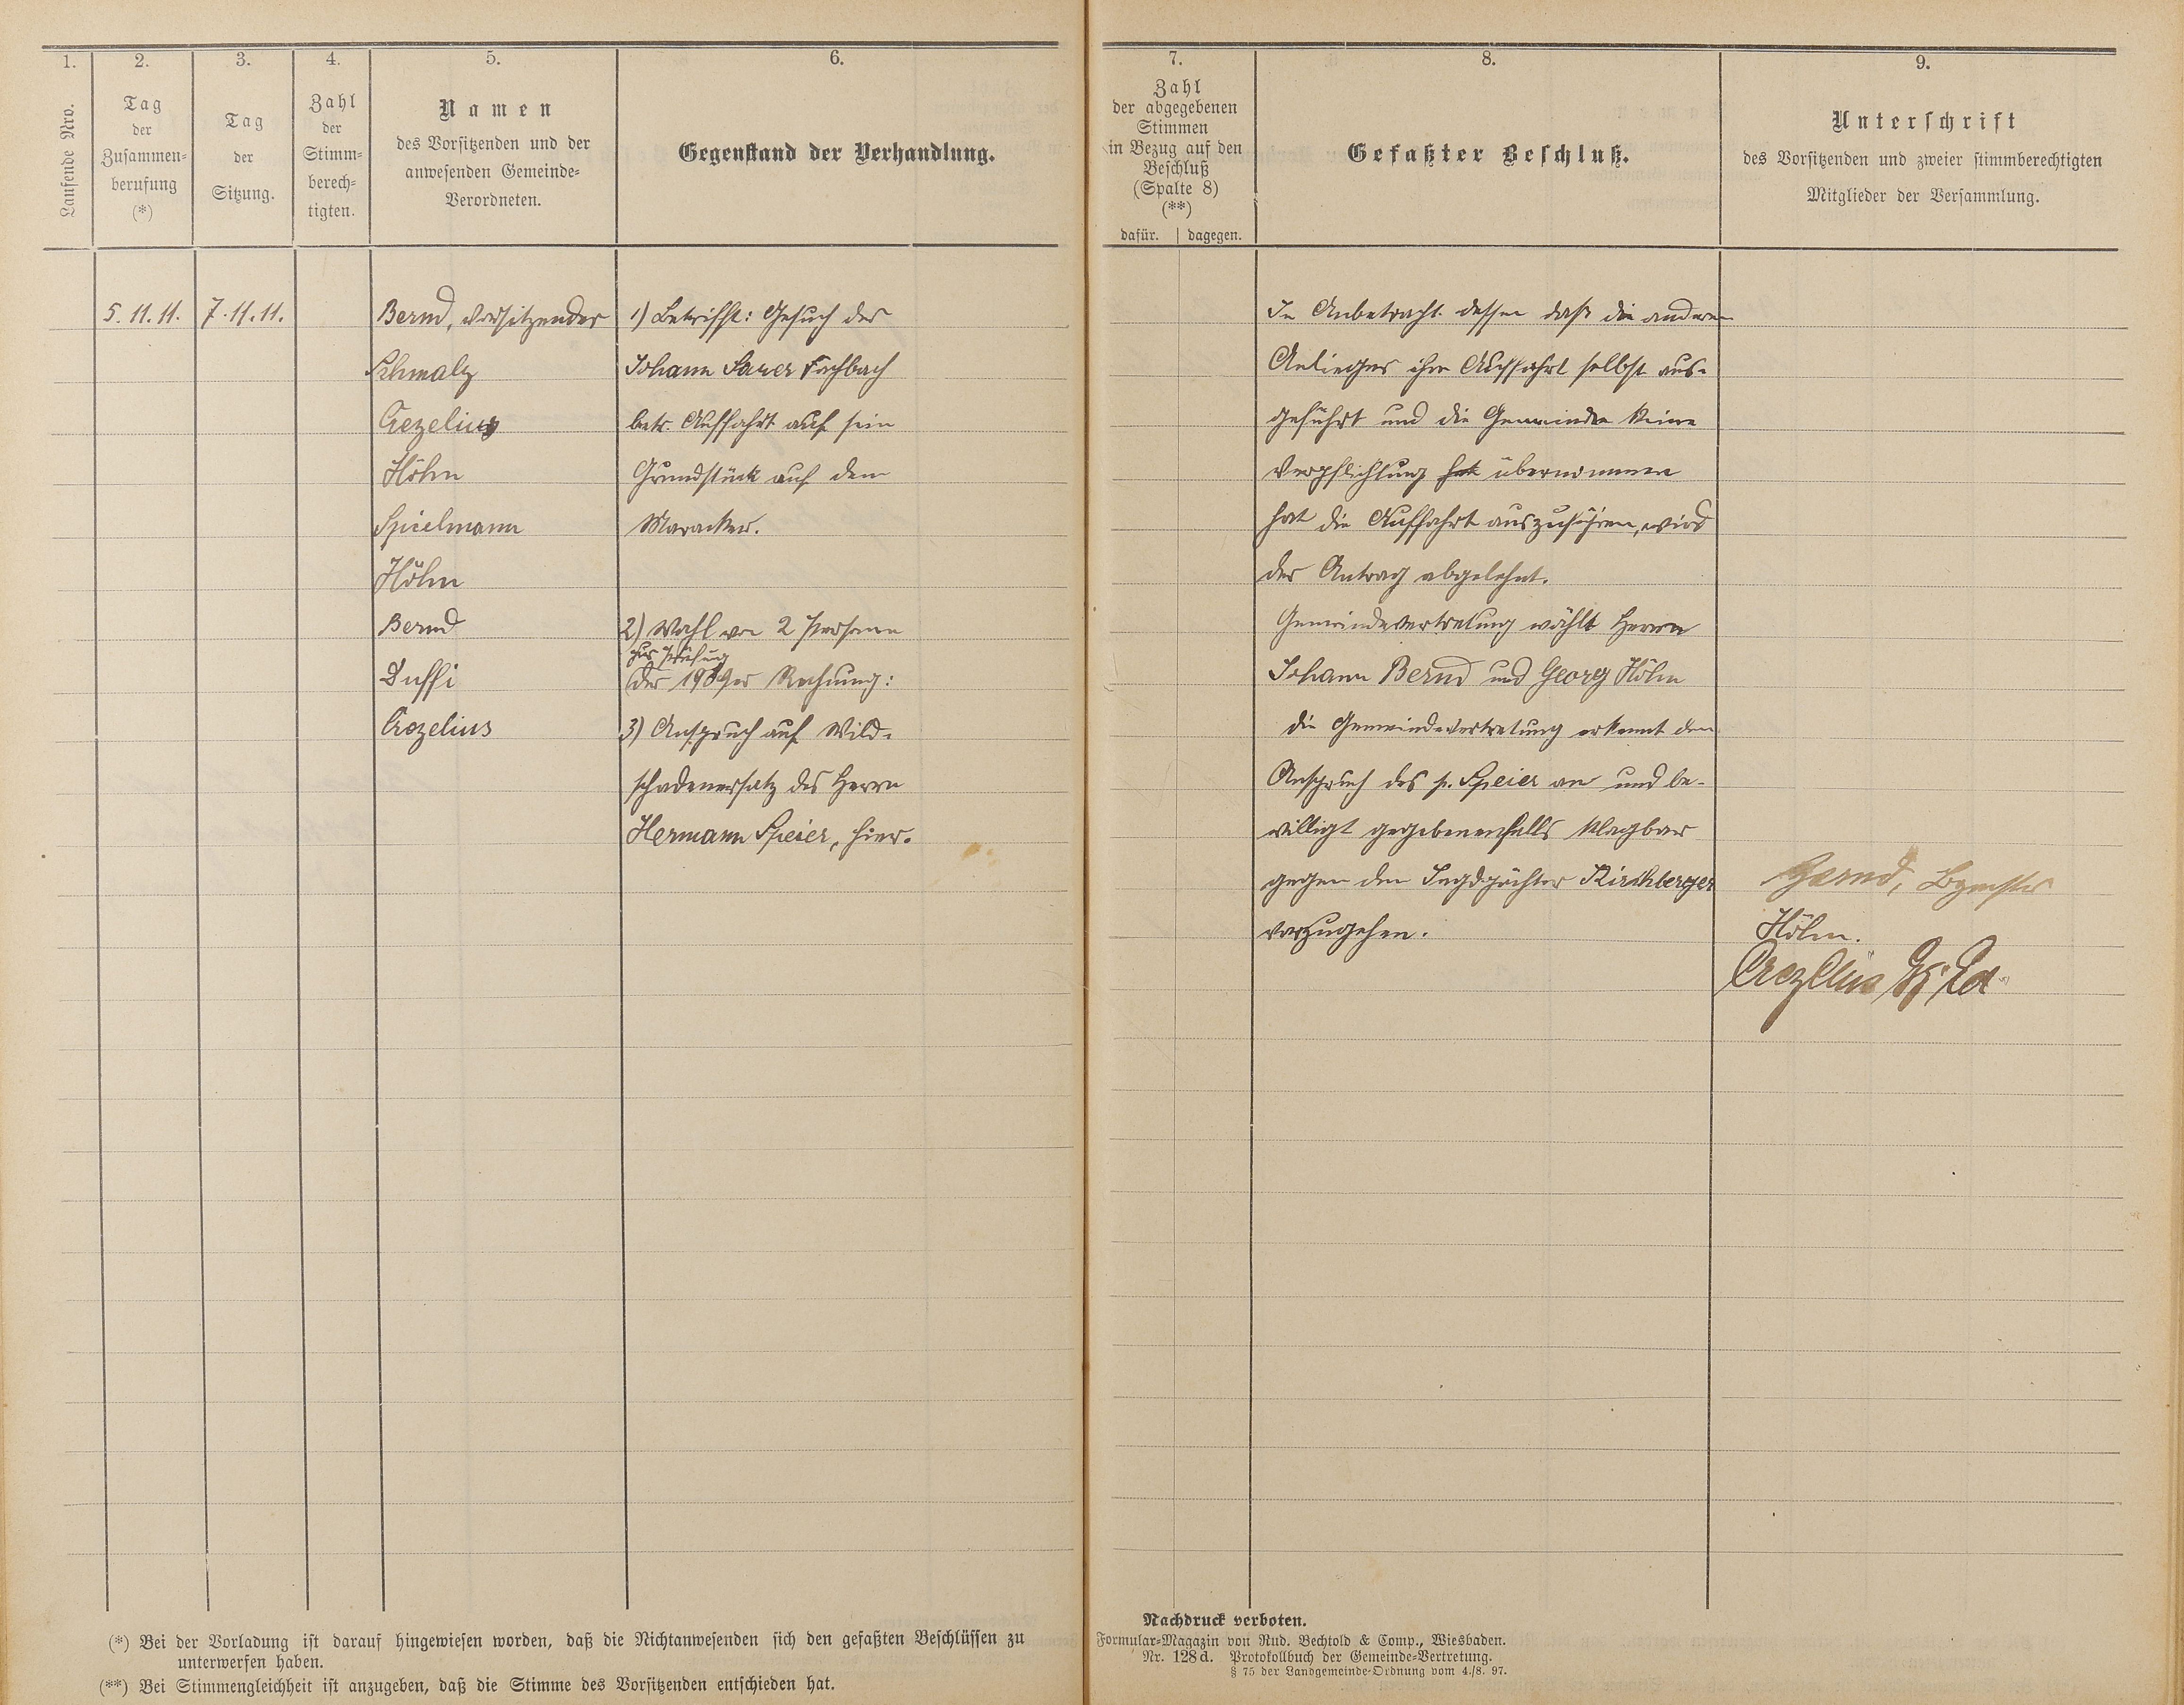 1.
Laufende Nro.
2.
Tag
der
Zusammen-
berufung
(*)
3.
Tag
der
Sitzung.
4.
Zahl
der
Stimm-
berech-
tigten.
5.
Namen
des Vorsitzenden und der
anwesenden Gemeinde-
Verordneten.
6.
Gegenstand der Verhandlung.
7.
Zahl
der abgegebenen
Stimmen
in Bezug auf den
Beschluß
(Spalte 8)
(**)
dafür. | dagegen.
8.
Gefaßter Beschluß.
9.
Unterschrift
des Vorsitzenden und zweier stimmberechtigten
Mitglieder der Versammlung.
5.11.11.
7.11.11.
Bernd, Vorsitzender
Schmalz
Crezelius
Höhn
Spielmann
Höhn
Bernd
Duffi
Crezelius
1) Betrifft: Gesuch des
Johann Sauer Fachbach
betr. Auffahrt auf sein
Grundstück auf dem
Maracker.
2) Wahl von 2 Personen
zur Prüfung
der 1909er Rechnung:
3) Anspruch auf Wild-
schadenersatz des Herrn
Hermann Speier, hier.
In Anbetracht dessen daß die anderen
Anlieger ihre Auffahrt selbst aus-
geführt und die Gemeinde keine
Verpflichtung hat übernommen
hat die Auffahrt auszuführen, wird
der Antrag abgelehnt.
Gemeindevertretung wählt Herrn
Johann Bernd und Georg Höhn
Die Gemeindevertretung erkennt den
Anspruch des p. Speier an und be-
willigt gegebenenfalls klagbar
gegen den Jagdpächter Kirchberger
vorzugehen.
Bernd, Bgmstr
Höhn.
Crezelius
(*) Bei der Vorladung ist darauf hingewiesen worden, daß die Nichtanwesenden sich den gefaßten Beschlüssen zu
unterwerfen haben.
(**) Bei Stimmengleichheit ist anzugeben, daß die Stimme des Vorsitzenden entschieden hat.
Nachdruck verboten.
Formular-Magazin von Rud. Bechtold & Comp., Wiesbaden.
Nr. 128d. Protokollbuch der Gemeinde-Vertretung.
§ 75 der Landgemeinde-Ordnung vom 4./8. 97.